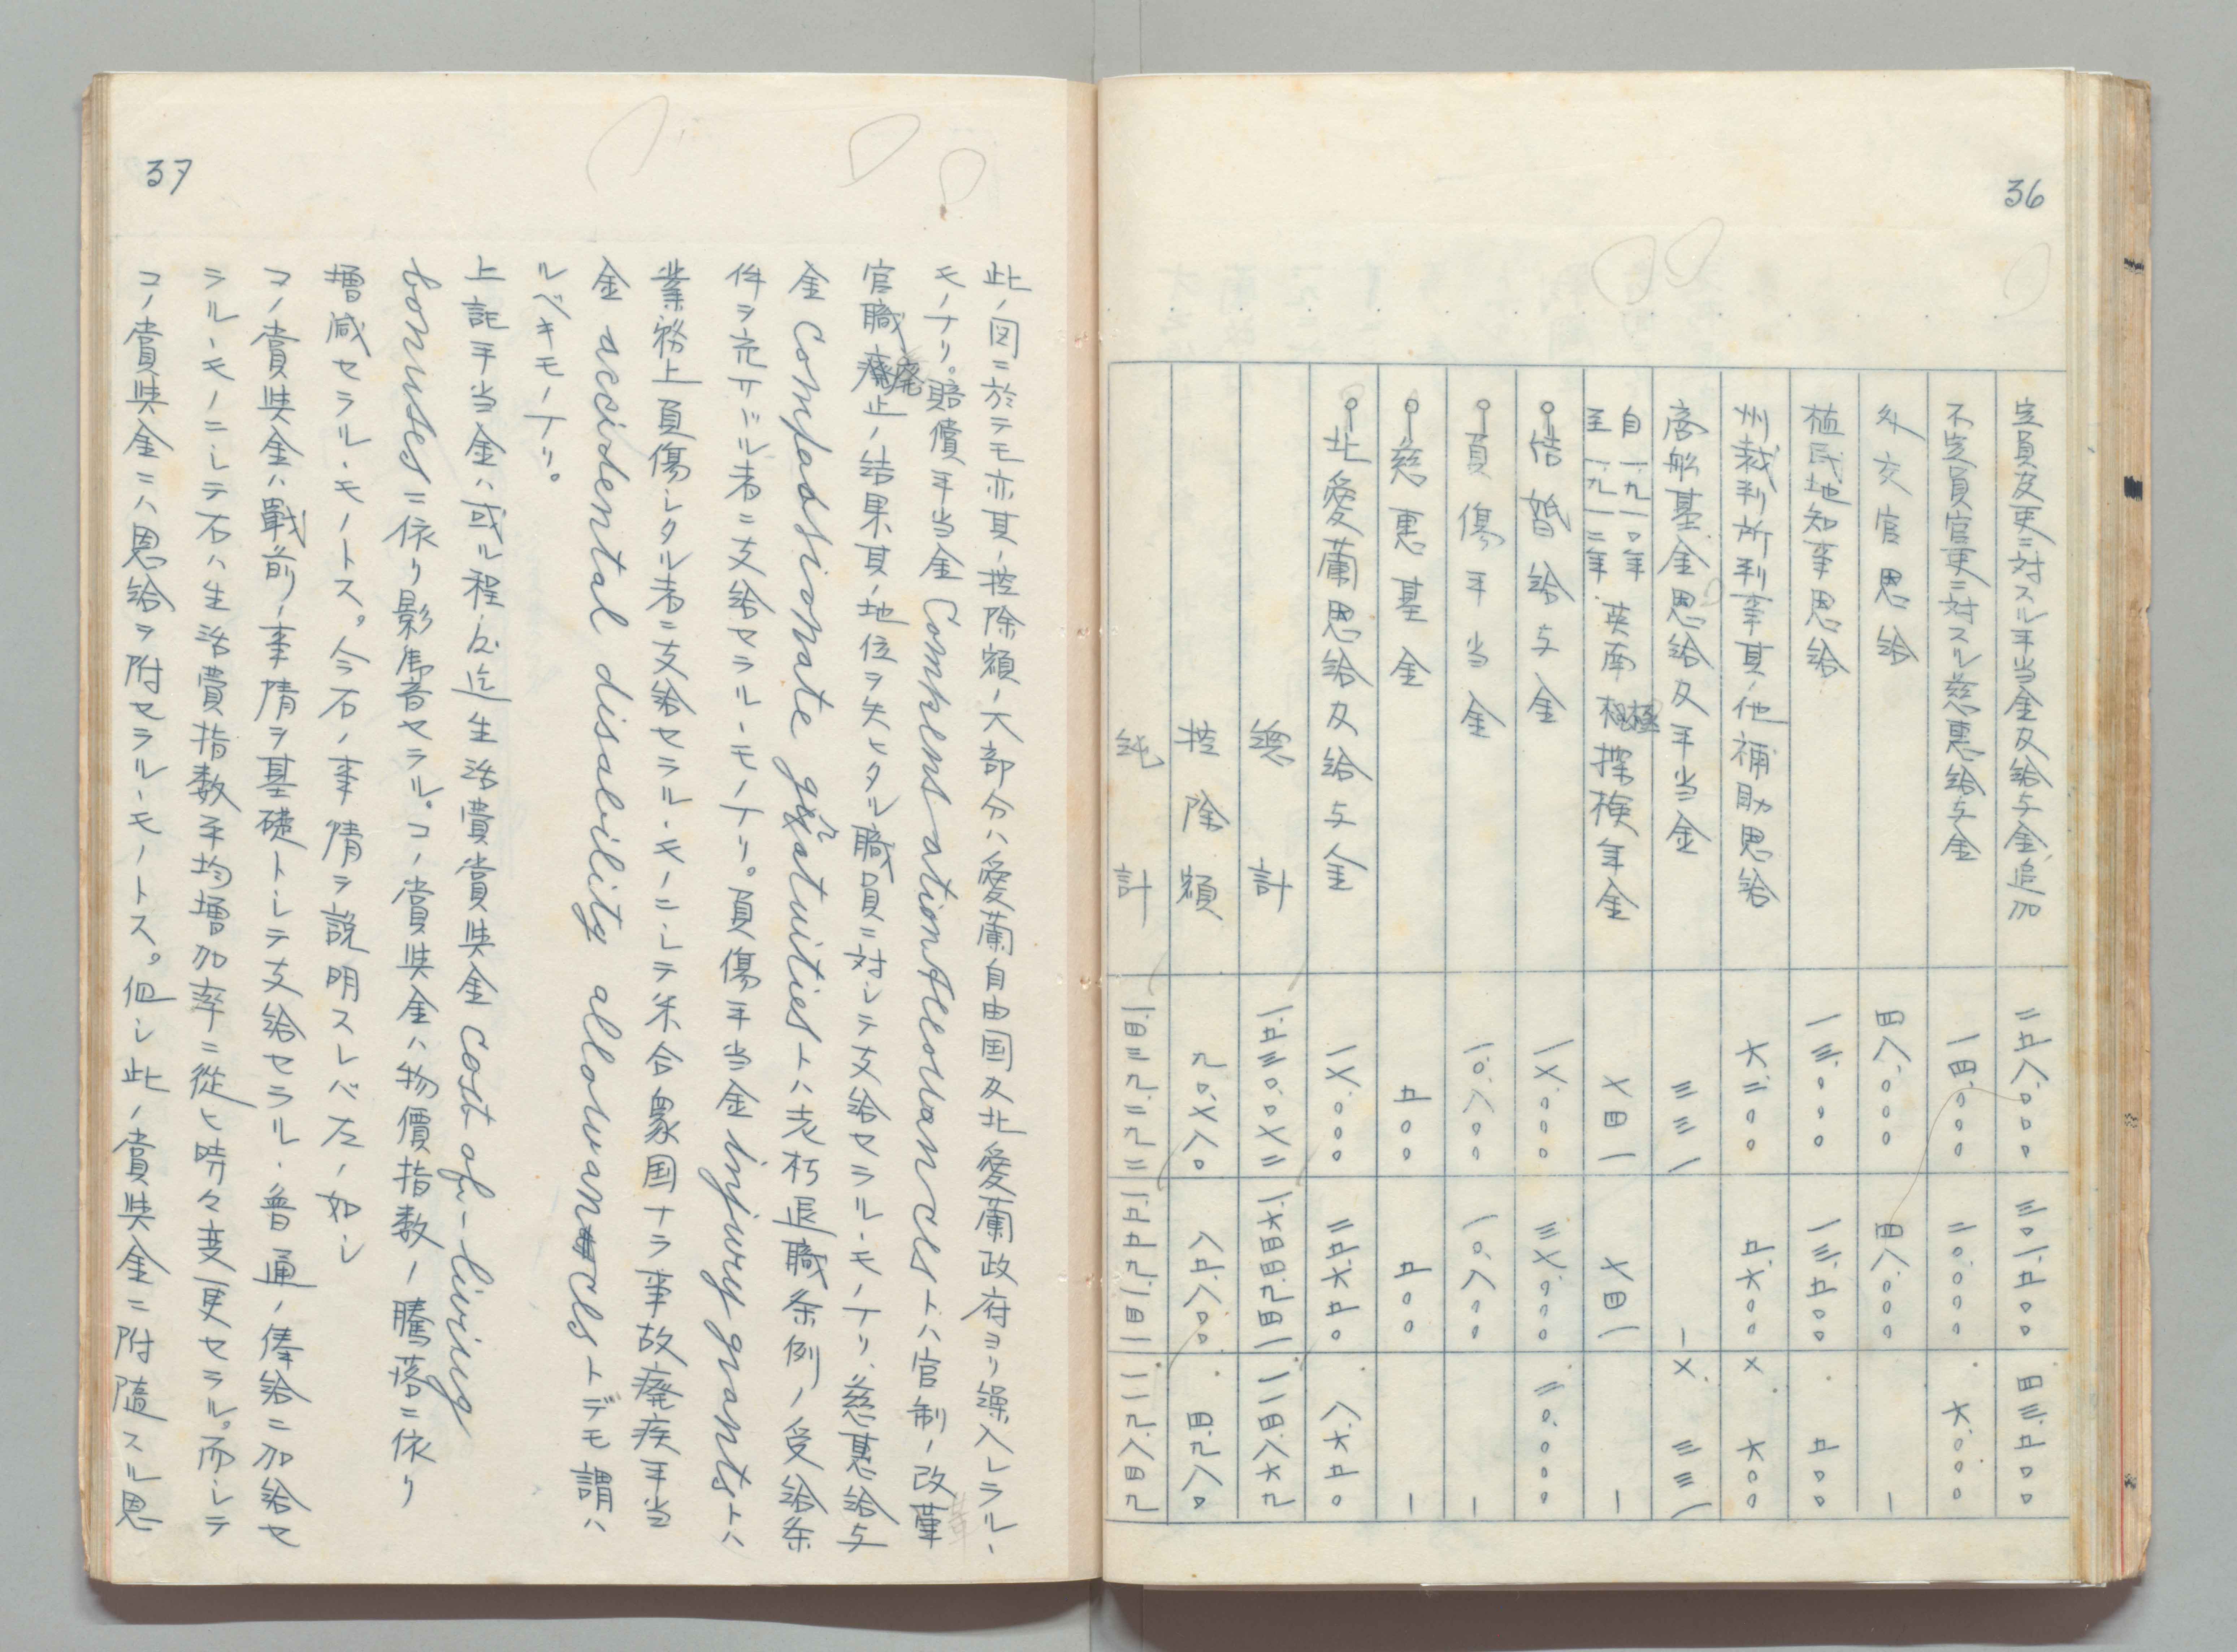 36
定員及吏ニ対スル手当金及給与金追加 二五八.〇〇〇 三〇一.五〇〇 四三.五〇〇
不定員官吏ニ対スル慈恵給与金 一四.〇〇〇 二〇.〇〇〇 六.〇〇〇
外交官恩給 四八.〇〇〇 四八.〇〇〇 ー
植民地知事恩給 一三.〇〇〇 一三.五〇〇 五〇〇
州裁判所判事其ノ他補助恩給 六.二〇〇 五.六〇〇 × 六〇〇
商船基金恩給及手当金 三三一 ー × 三三一
自一九一〇年至一九一二年 英南極探検年金 七四一 七四一 ー
結婚給与金 一七.〇〇〇 三七.〇〇〇 二〇.〇〇〇
負傷手当金 一〇.八〇〇 一〇.八〇〇 ー
慈恵基金 五〇〇 五〇〇 ー
北愛蘭恩給及給与金 一七.〇〇〇 二五.六五〇 八.六五〇
総計 一.五三〇.〇七二 一.六四四.九四一 一一四.八六九
控除額 九〇.七八〇 八五.八〇〇 四.九八〇
純計 一.四三九.二九二 一.五五九.一四一 一一九.八四九
37
此ノ図ニ於テモ亦其ノ控除額ノ大部分ハ愛蘭自由国及北愛蘭政府ヨリ繰入レラル丶
モノナリ。賠償手当金 Compensation Allowances トハ官制ノ改革
官職廃止ノ結果其ノ地位ヲ失ヒタル職員ニ対シテ支給セラル丶モノナリ、慈恵給与
金 Compassionate gratuities トハ老朽退職条例ノ受給条
件ヲ充サヾル者ニ支給セラル丶モノナリ。負傷手当金 injury grants トハ
業務上負傷シタル者ニ支給セラル丶モノニシテ米合衆国ナラ事故廃疾手当
金 accidental disability allowances トデモ謂ハ
ルベキモノナリ。
上記手当金ハ或ル程度迄生活費賞與金 cost of-living
bonuses ニ依リ影響セラル。コノ賞與金ハ物價指数ノ騰落ニ依リ
増減セラル丶モノトス。今右ノ事情ヲ説明スレバ左ノ如シ
コノ賞與金ハ戰前ノ事情ヲ基礎トシテ支給セラル丶普通ノ俸給ニ加給セ
ラル丶モノニシテ右ハ生活費指数平均増加率ニ從ヒ時々変更セラル。而シテ
コノ賞與金ニハ恩給ヲ附セラル丶モノトス。但シ此ノ賞與金ニ附隨スル恩